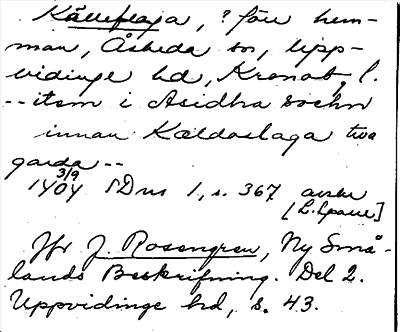 Källeflaga, ? förr hem-
man, Åsheda sn, Upp-
vidinge hd, Kronob. l.
-- item i Asidha sochn
innan Kældaslaga two
garda --
3/9
1404 SD ns 1, s. 367 avskr
[L. Sparre]
Jfr J. Rosengren, Ny Små-
lands Beskrifning. Del 2.
Uppvidinge hd, s. 43.